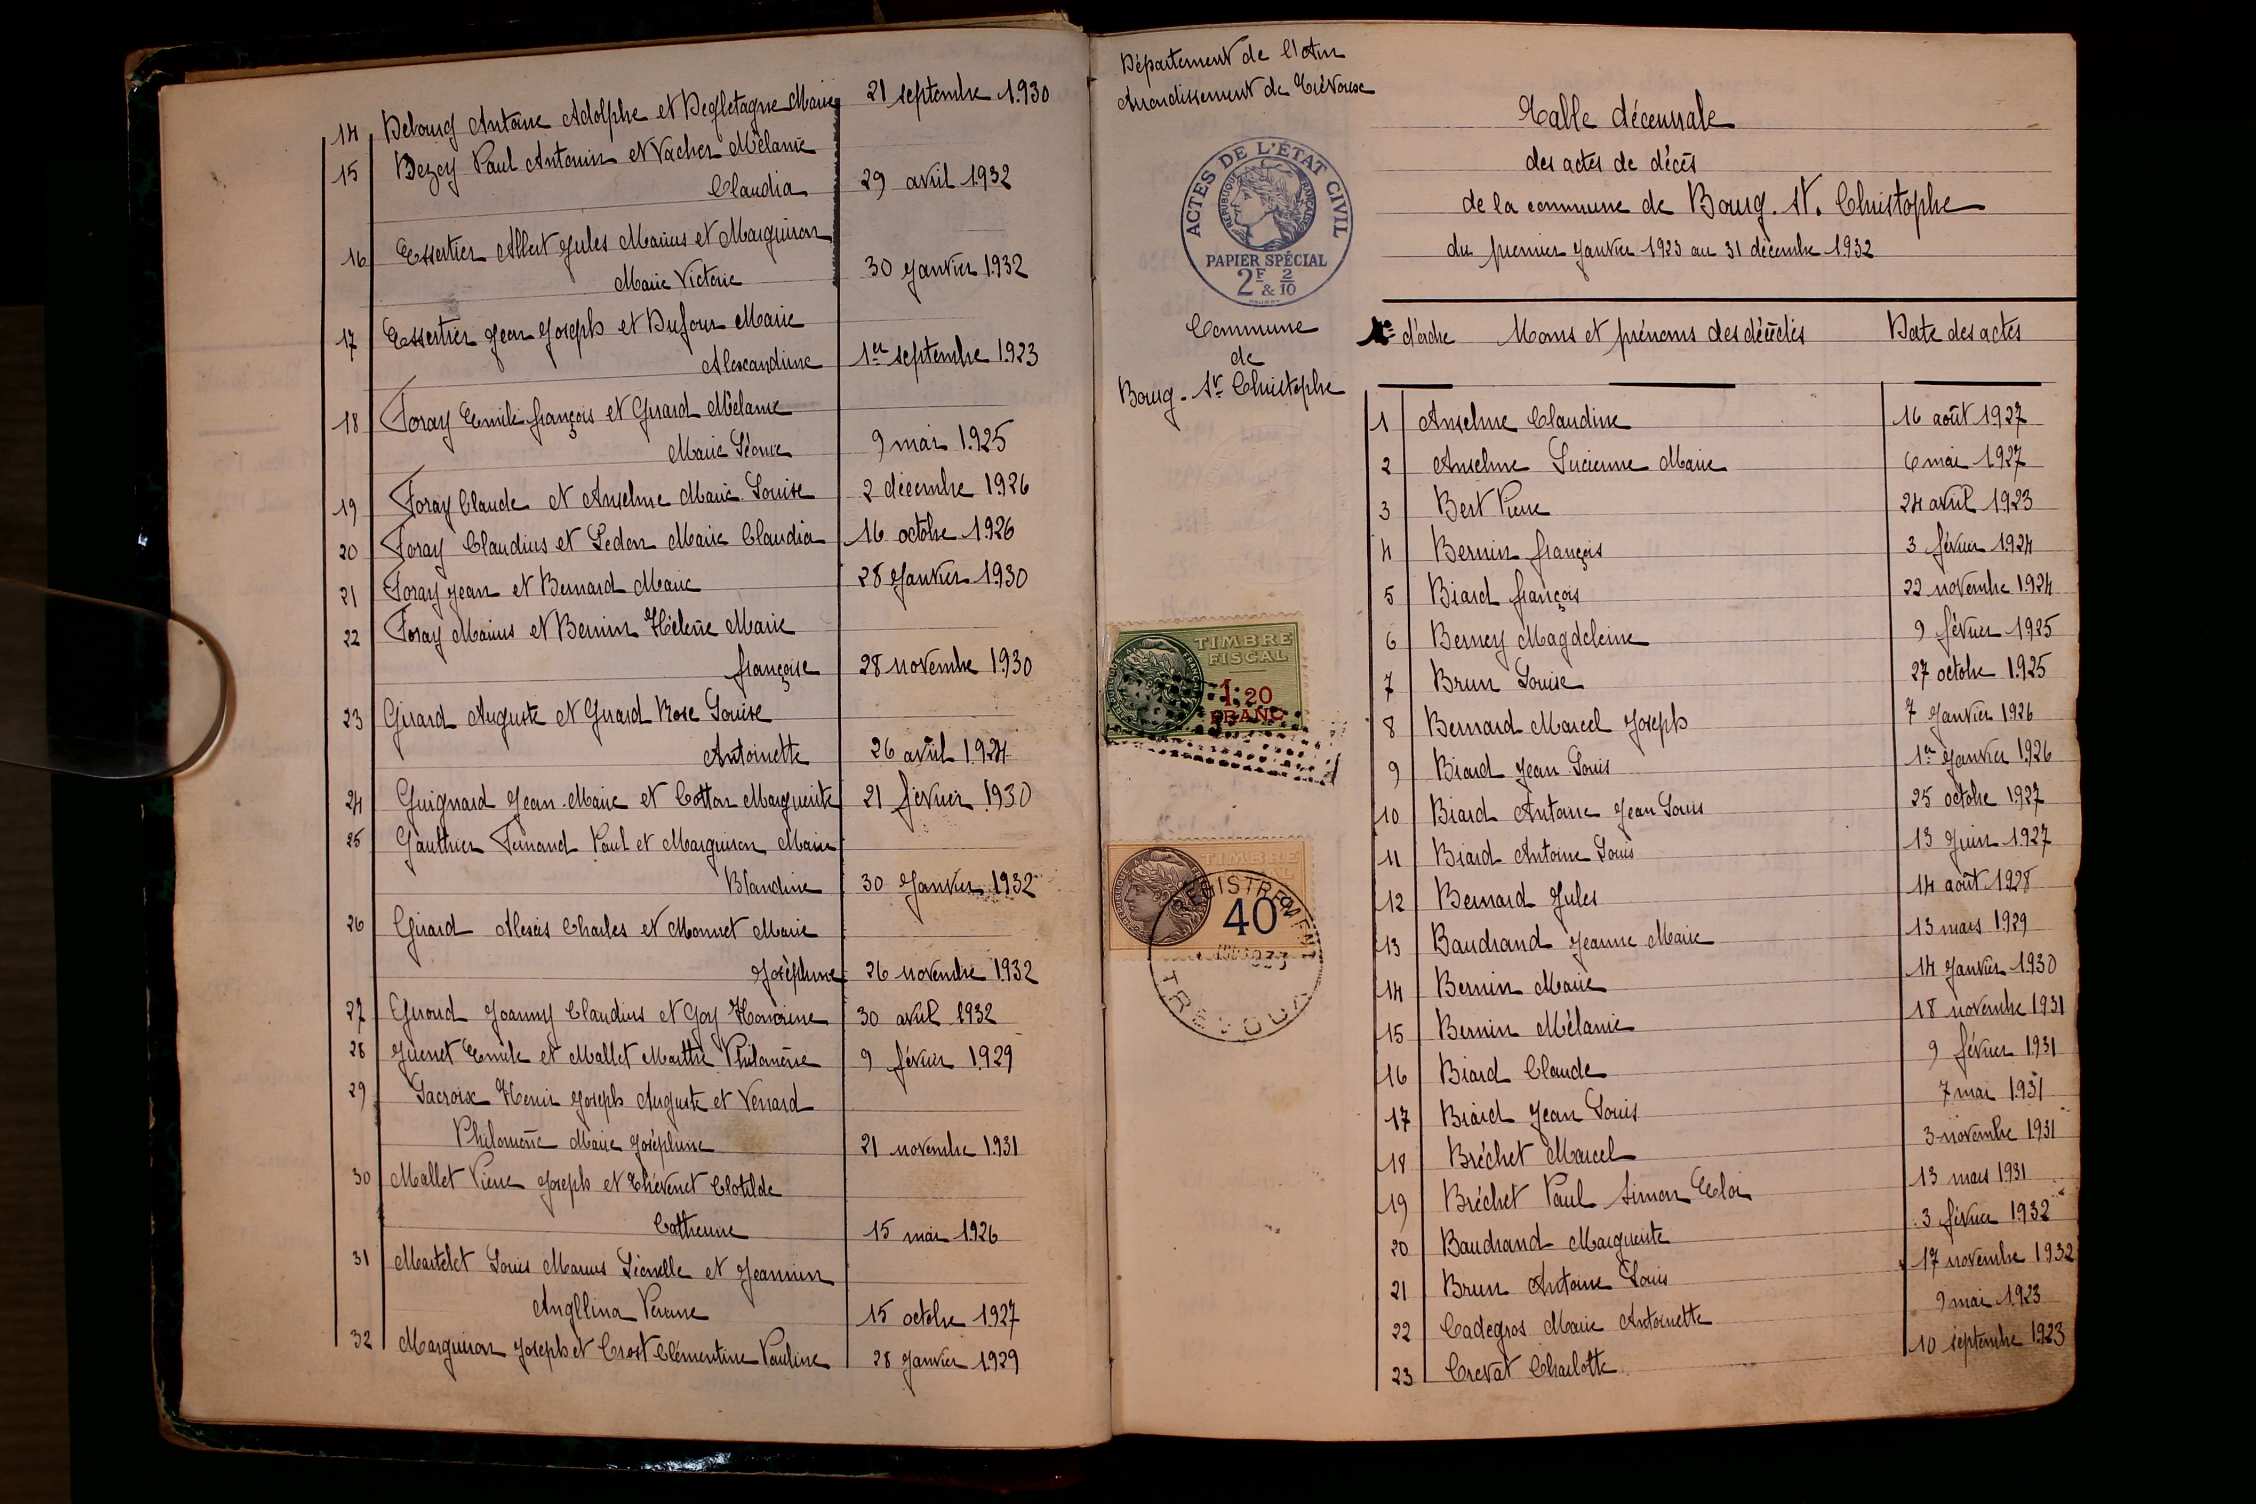 14 Debourg Antoine Adolphe et Degletagne Marie 21 septembre 1930
15 Bezey Paul Antonin et Vacher Mélanie
Claudia 29 avril 1932
16 Essertier Albert Jules Marius et Marguiron
Marie Victorie 30 Janvier 1932
17 Essertier Jean Joseph et Dufour Marie
Alexandrine 1er septembre 1923
18 Foray Emile françois et Girard Mélanie
Marie Léonie 9 mai 1925
19 Foray Claude et Anselme Marie Louise 2 décembre 1926
20 Foray Claudius et Ledon Marie Claudia 16 octobre 1926
21 Foray Jean et Bernard Marie 28 Janvier 1930
22 Foray Marius et Bernin Hélène Marie
françoise 28 novembre 1930
23 Girard Auguste et Girard Rose Louise
Antoinette 26 avril 1924
24 Guignard Jean-Marie et Cotton Marguerite 21 février 1930
25 Gauthier Fernand Paul et Marguiron Marie
Blandine 30 Janvier 1932
26 Girard Alexis Charles et Monnet Marie
Joséphine 26 novembre 1932
27 Giroud Joanny Claudius et Goy Honorine 30 avril 1932
28 Juenet Emile et Mallet Marthe Philomène 9 février 1929
29 Lacroix Henri Joseph Auguste et Venard
Philomène Marie Joséphine 21 novembre 1931
30 Mallet Pierre Joseph et Thévenet Clotilde
Catherine 15 mai 1926
31 Martelet Louis Marius Lionelle et Jeannin
Angllina Pierrine 15 octobre 1927
32 Marguiron Joseph et Crost Clémentine Pauline 28 Janvier 1929
Département de l'Ain
Arrondissement de Trévoux
ACTES DE L'ÉTAT CIVIL
RÉPUBLIQUE FRANÇAISE
PAPIER SPÉCIAL
2F & 2/10
Commune
de
Bourg-St Christophe
TIMBRE
FISCAL
1.20
FRANC
TIMBRE
40
ENREGISTREMENT
TREVOUX
Table décennale
des actes de décès
de la commune de Bourg-St. Christophe
du premier Janvier 1923 au 31 décembre 1932
No d'ordre Noms et prénoms des décédés Date des actes
1 Anselme Claudine 16 août 1927
2 Anselme Lucienne Marie 6 mai 1927
3 Bert Pierre 24 avril 1923
4 Bernin françois 3 février 1924
5 Biard françois 22 novembre 1924
6 Berney Magdeleine 9 février 1925
7 Brun Louise 27 octobre 1925
8 Bernard Marcel Joseph 7 Janvier 1926
9 Biard Jean Louis 1er Janvier 1926
10 Biard Antoine Jean Louis 25 octobre 1927
11 Biard Antoine Louis 13 Juin 1927
12 Bernard Jules 14 août 1928
13 Baudrand Jeanne Marie 13 mars 1929
14 Bernin Marie 14 Janvier 1930
15 Bernin Mélanie 18 novembre 1931
16 Biard Claude 9 février 1931
17 Biard Jean Louis 7 mai 1931
18 Bréchet Marcel 3 novembre 1931
19 Bréchet Paul Simon Eloi 13 mars 1931
20 Baudrand Marguerite 3 février 1932
21 Brun Antoine Louis 17 novembre 1932
22 Cadegros Marie Antoinette 9 mai 1923
23 Crevat Charlotte 10 septembre 1923